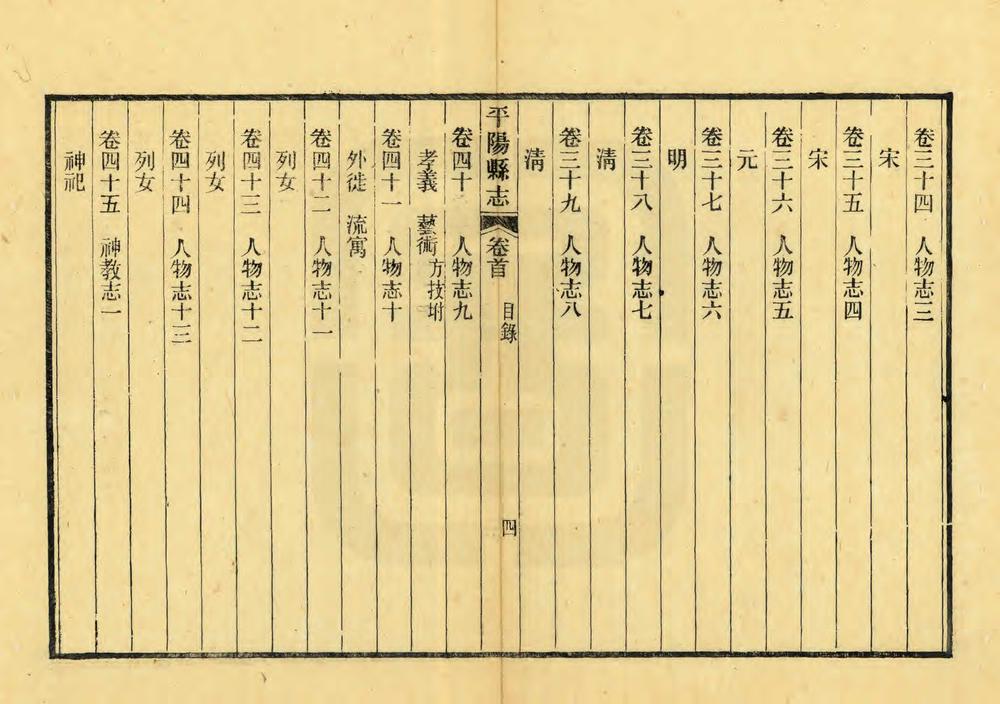 卷三十四　人物志三
宋
卷三十五　人物志四
宋
卷三十六　人物志五
元
卷三十七　人物志六
明
卷三十八　人物志七
清
卷三十九　人物志八
清
平陽縣志　卷首　目錄　四
卷四十　人物志九
孝義　藝術方技坿
卷四十一　人物志十
外徙　流寓
卷四十二　人物志十一
列女
卷四十三　人物志十二
列女
卷四十四　人物志十三
列女
卷四十五　神教志一
神祀